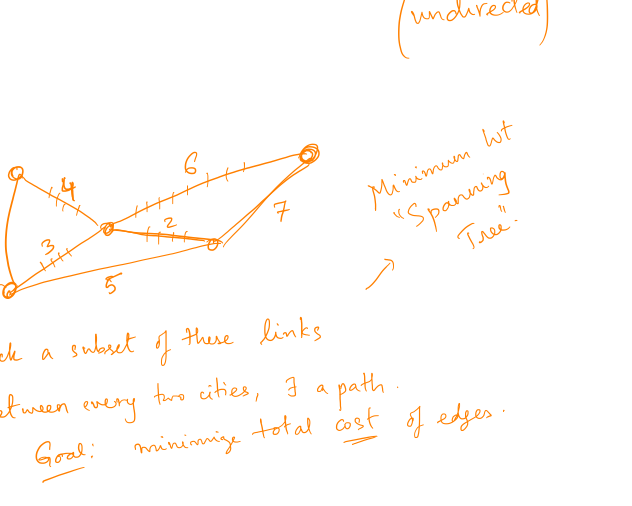 (undirected)
6
4
Minimum Wt
"Spanning
Tree".
2
7
3
5
ck a subset of these links
etween every two cities, ∃ a path.
Goal: minimize total cost of edges.